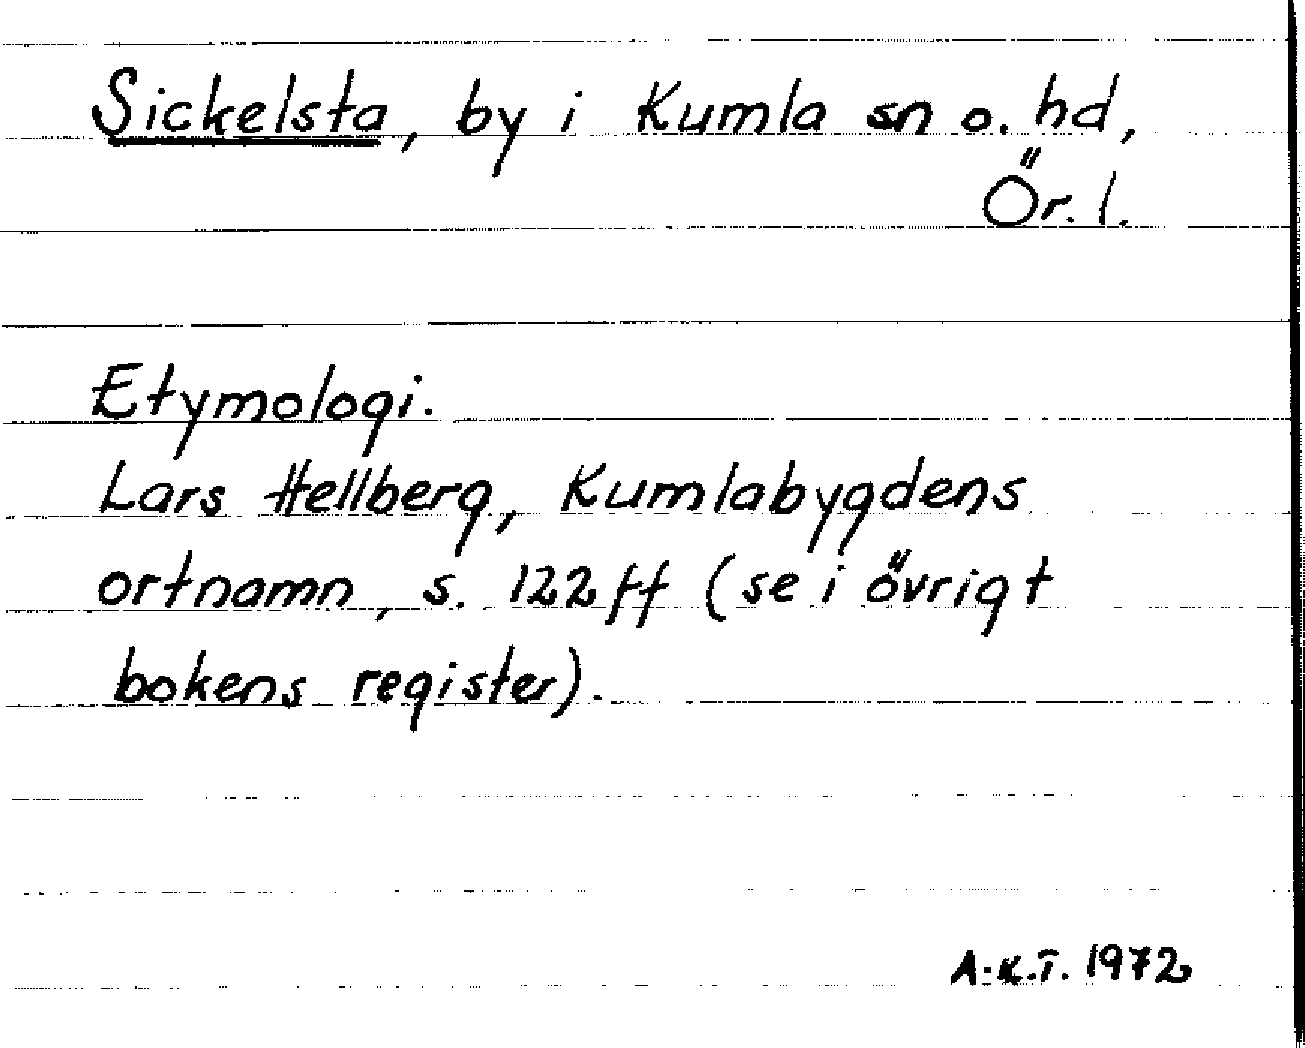 Sickelsta, by i Kumla sn o. hd,
Ör. l.
Etymologi.
Lars Hellberg, Kumlabygdens
ortnamn, s. 122 ff (se i övrigt
bokens register).
A-K.T. 1972